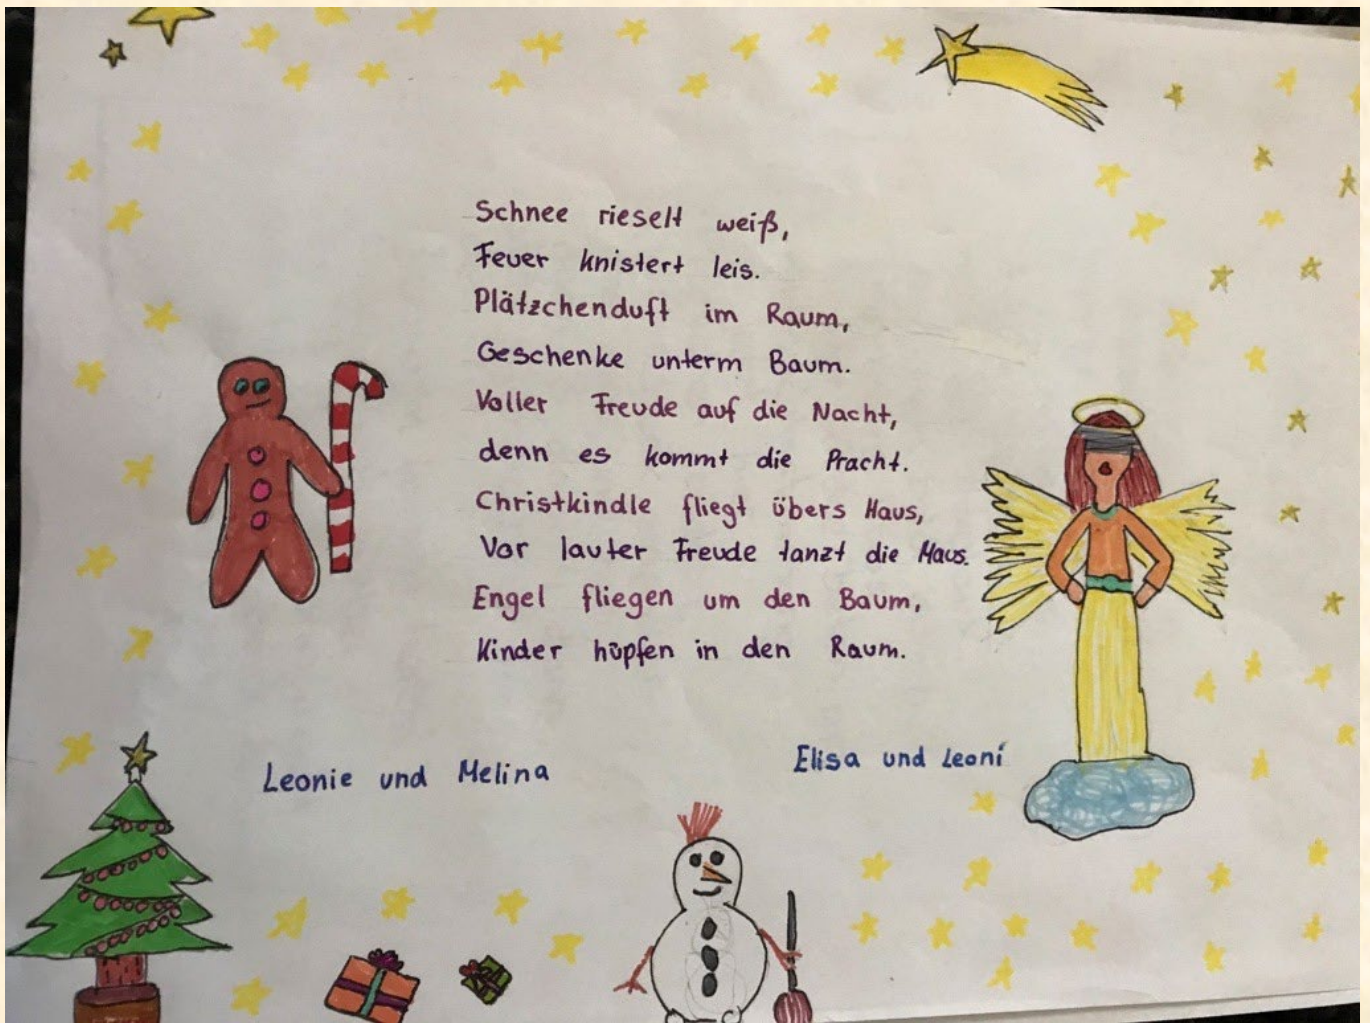 Schnee rieselt weiß,
Feuer knistert leis.
Plätzchenduft im Raum,
Geschenke unterm Baum.
Voller Freude auf die Nacht,
denn es kommt die Pracht.
Christkindle fliegt übers Haus,
Vor lauter Freude tanzt die Maus.
Engel fliegen um den Baum,
Kinder hüpfen in den Raum.
Leonie und Melina
Elisa und Leoni